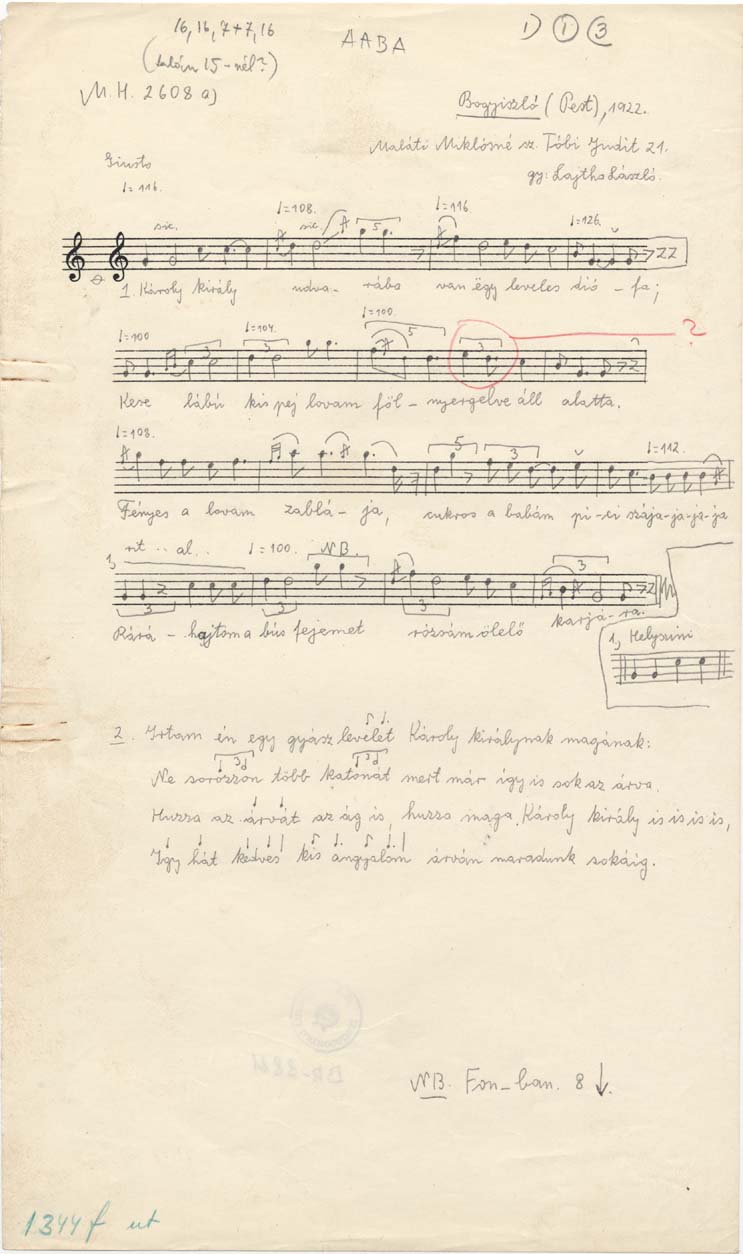 16, 16, 7+7, 16
AABA
1) 1 3
(talán 15-nél?)
M. H. 2608 a)
Bogyiszló (Pest), 1922.
Maláti Miklósné sz. Tóbi Judit 21.
gy: Lajtha László.
Giusto
♩=116.
♩=108.
♩=116.
♩=126.
sic.
sic.
5
1. Károly király udva- rába van ëgy leveles dió - fa;
♩=100
♩=104.
♩=100.
?
3
3
5
3
Kese lábú kis pej lovam föl - nyergelve áll alatta.
♩=108.
♩=112.
5
3
Fényes a lovam zablá - ja, cukros a babám pi-ci szája-ja-ja-ja
1, rit .. al ..
♩=100.
NB.
3
3
3
3
Rárá - hajtom a bús fejemet rózsám ölelő karjá-ra.
1, Helyszíni
2. Irtam én egy gyász levelet Károly királynak magának:
3
3
Ne sorozzon több katonát mert már így is sok az árva.
Huzza az árvát az ág is, huzza maga Károly király is is is is,
Így hát kedves kis angyalom árván maradunk sokáig.
NB. Fon-ban. 8 ↓.
1344 f ut